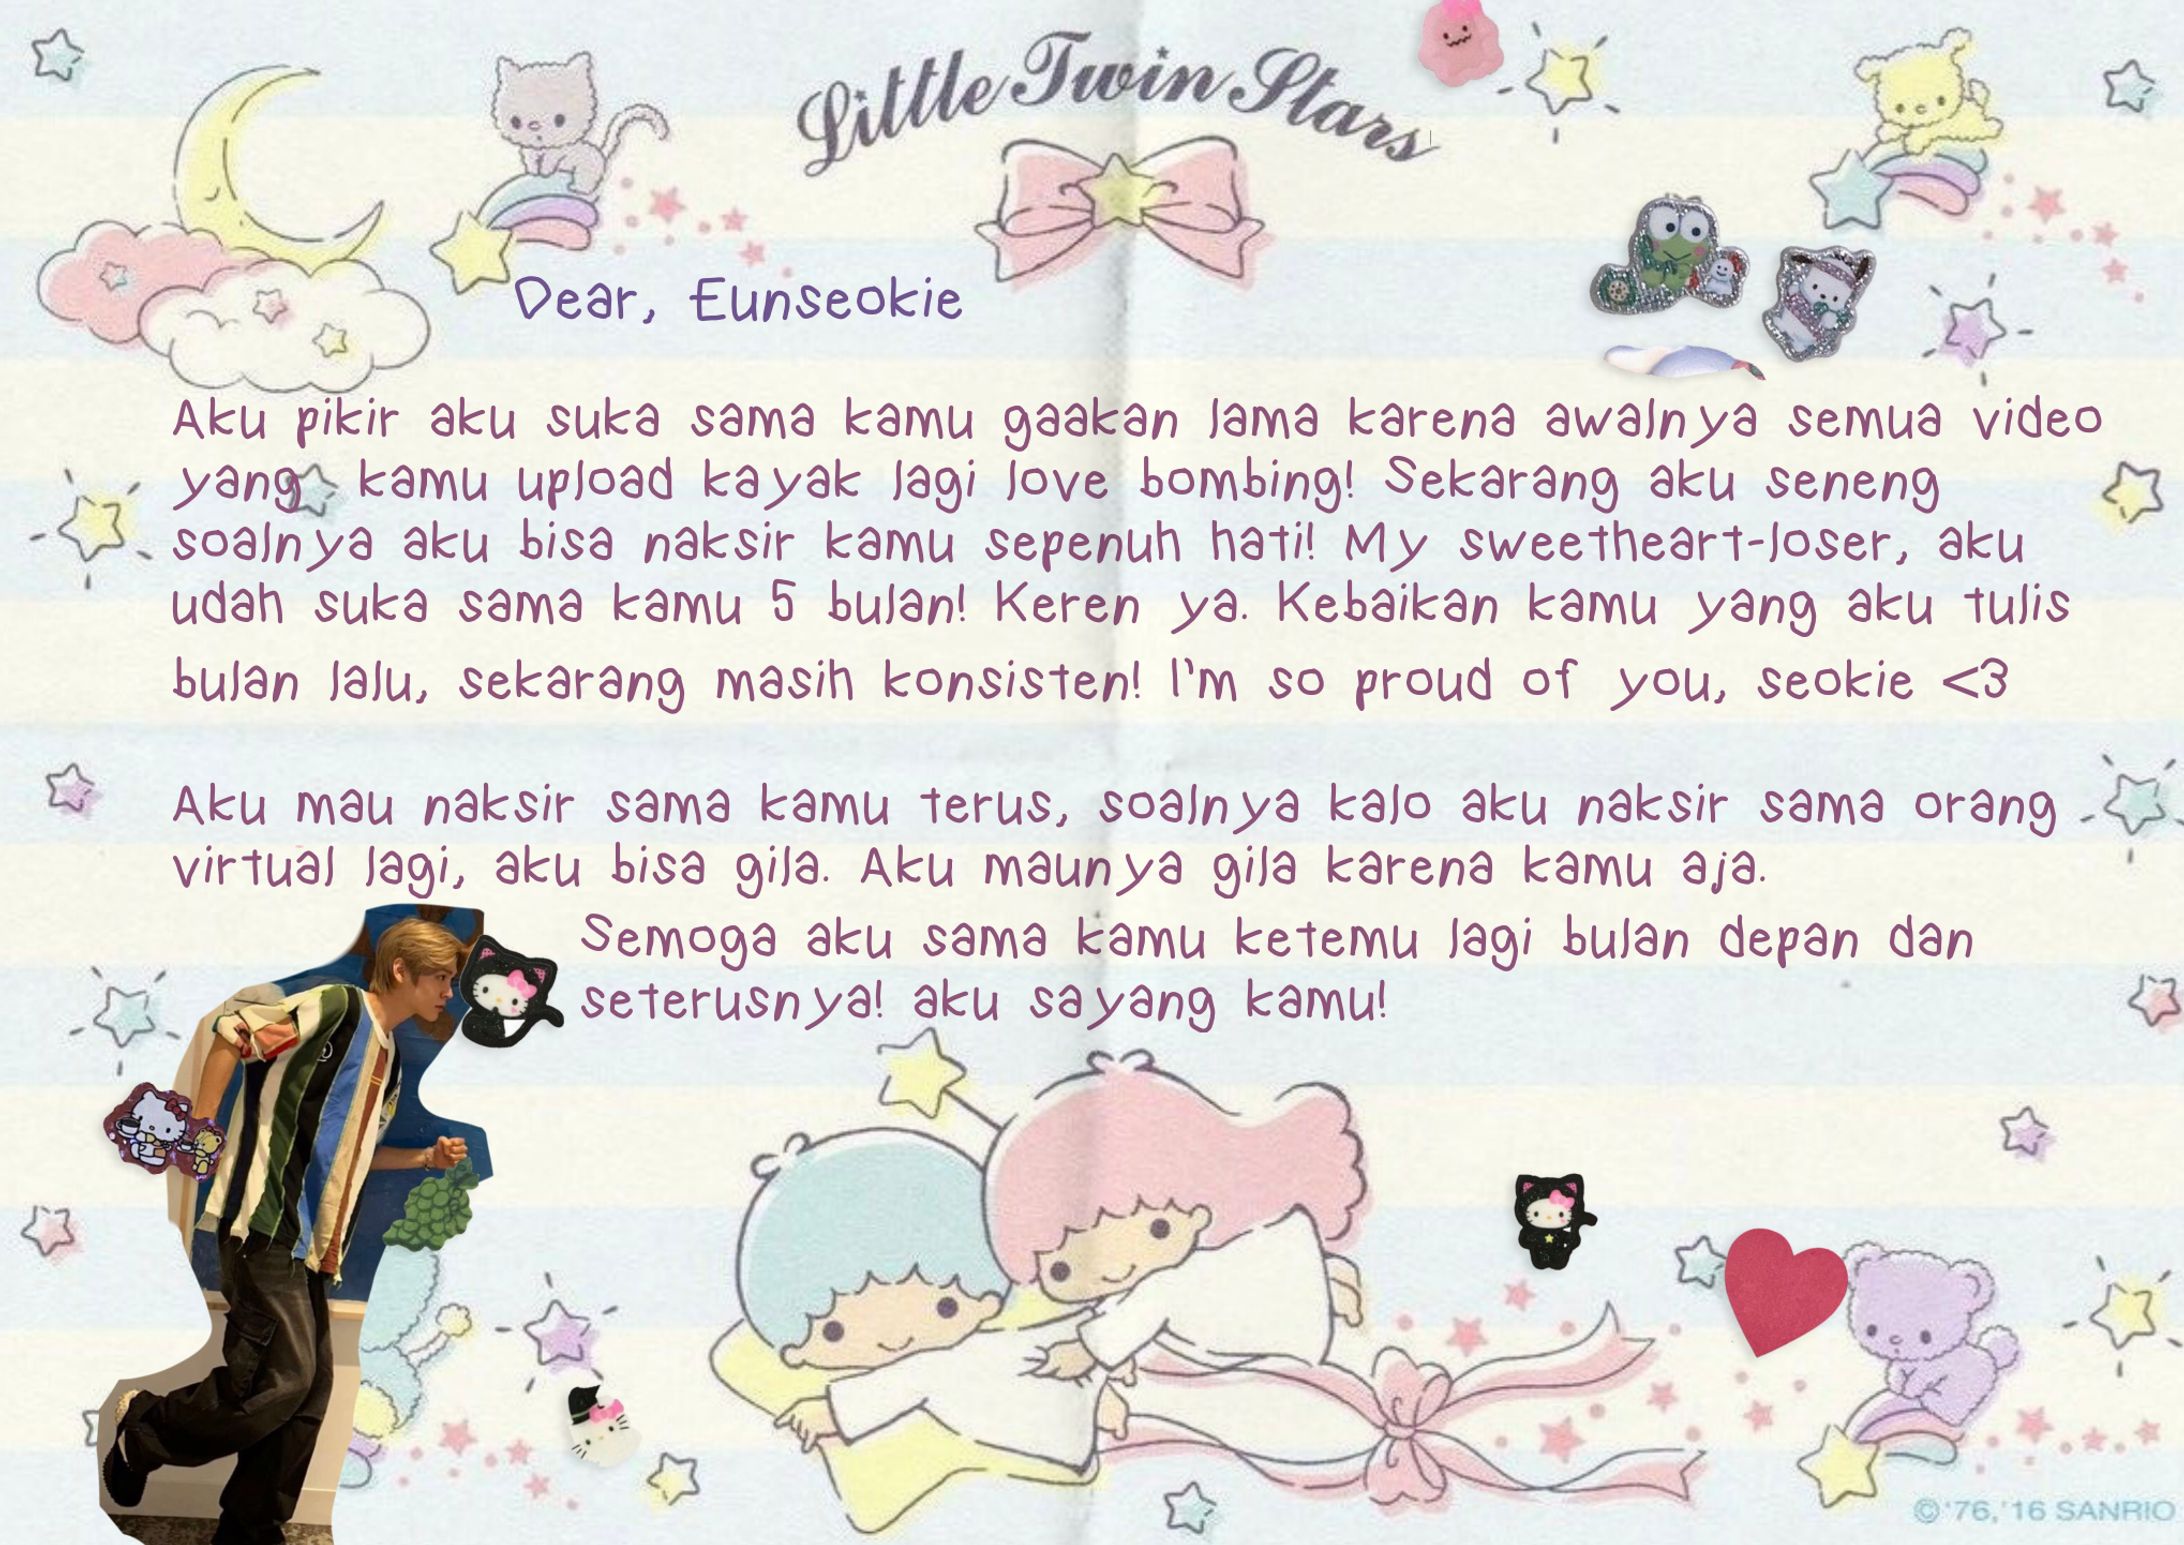 Little Twin Stars
Dear, Eunseokie
Aku pikir aku suka sama kamu gaakan lama karena awalnya semua video
yang kamu upload kayak lagi love bombing! Sekarang aku seneng
soalnya aku bisa naksir kamu sepenuh hati! My sweetheart-loser, aku
udah suka sama kamu 5 bulan! Keren ya. Kebaikan kamu yang aku tulis
bulan lalu, sekarang masih konsisten! I'm so proud of you, seokie <3
Aku mau naksir sama kamu terus, soalnya kalo aku naksir sama orang
virtual lagi, aku bisa gila. Aku maunya gila karena kamu aja.
Semoga aku sama kamu ketemu lagi bulan depan dan
seterusnya! aku sayang kamu!
© '76, '16 SANRIO